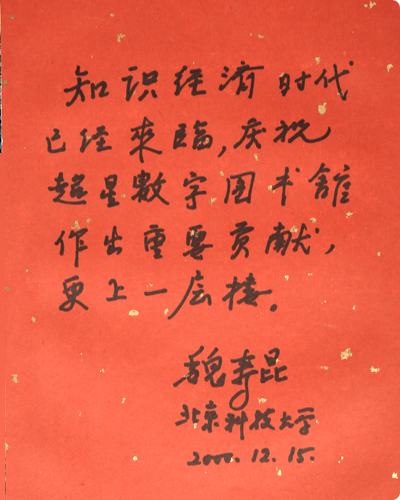 知识经济时代
已经来临,庆祝
超星数字图书馆
作出重要贡献,
更上一层楼。
魏寿昆
北京科技大学
2000.12.15.